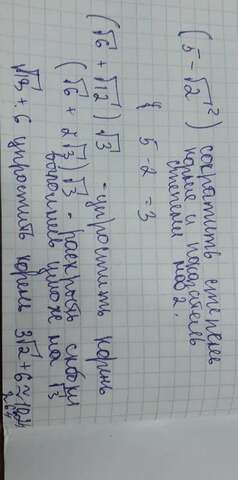 (5 - √2²) сократить степень
корня и показатель
степени на 2.
5 - 2 = 3
(√6 + √12) √3 - упростить корень
(√6 + 2√3) √3 - раскрыть скобки
умнож на √3
√18 + 6 упростить корень 3√2 + 6 ≈ 10,24